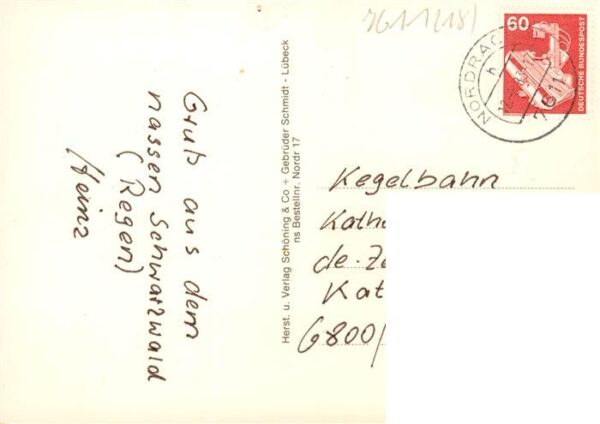 7611 (18)
60
DEUTSCHE BUNDESPOST
NORDRAC
7611
Gruß aus dem
nassen Schwarzwald
(Regen)
Heinz
Herst. u. Verlag Schöning & Co + Gebrüder Schmidt - Lübeck
ns Bestellnr. Nordr 17
Kegelbahn
Kath
de-Z
Kat
6800/